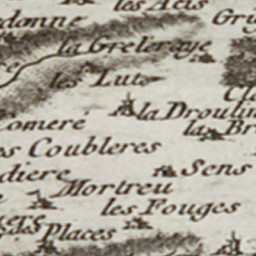 les Aets
donne
Gry
la Greleraye
les Luts
Cl
la Droulin
la Br
omeré
s Coubleres
Sens
diere
Mortreu
les Fouges
Places